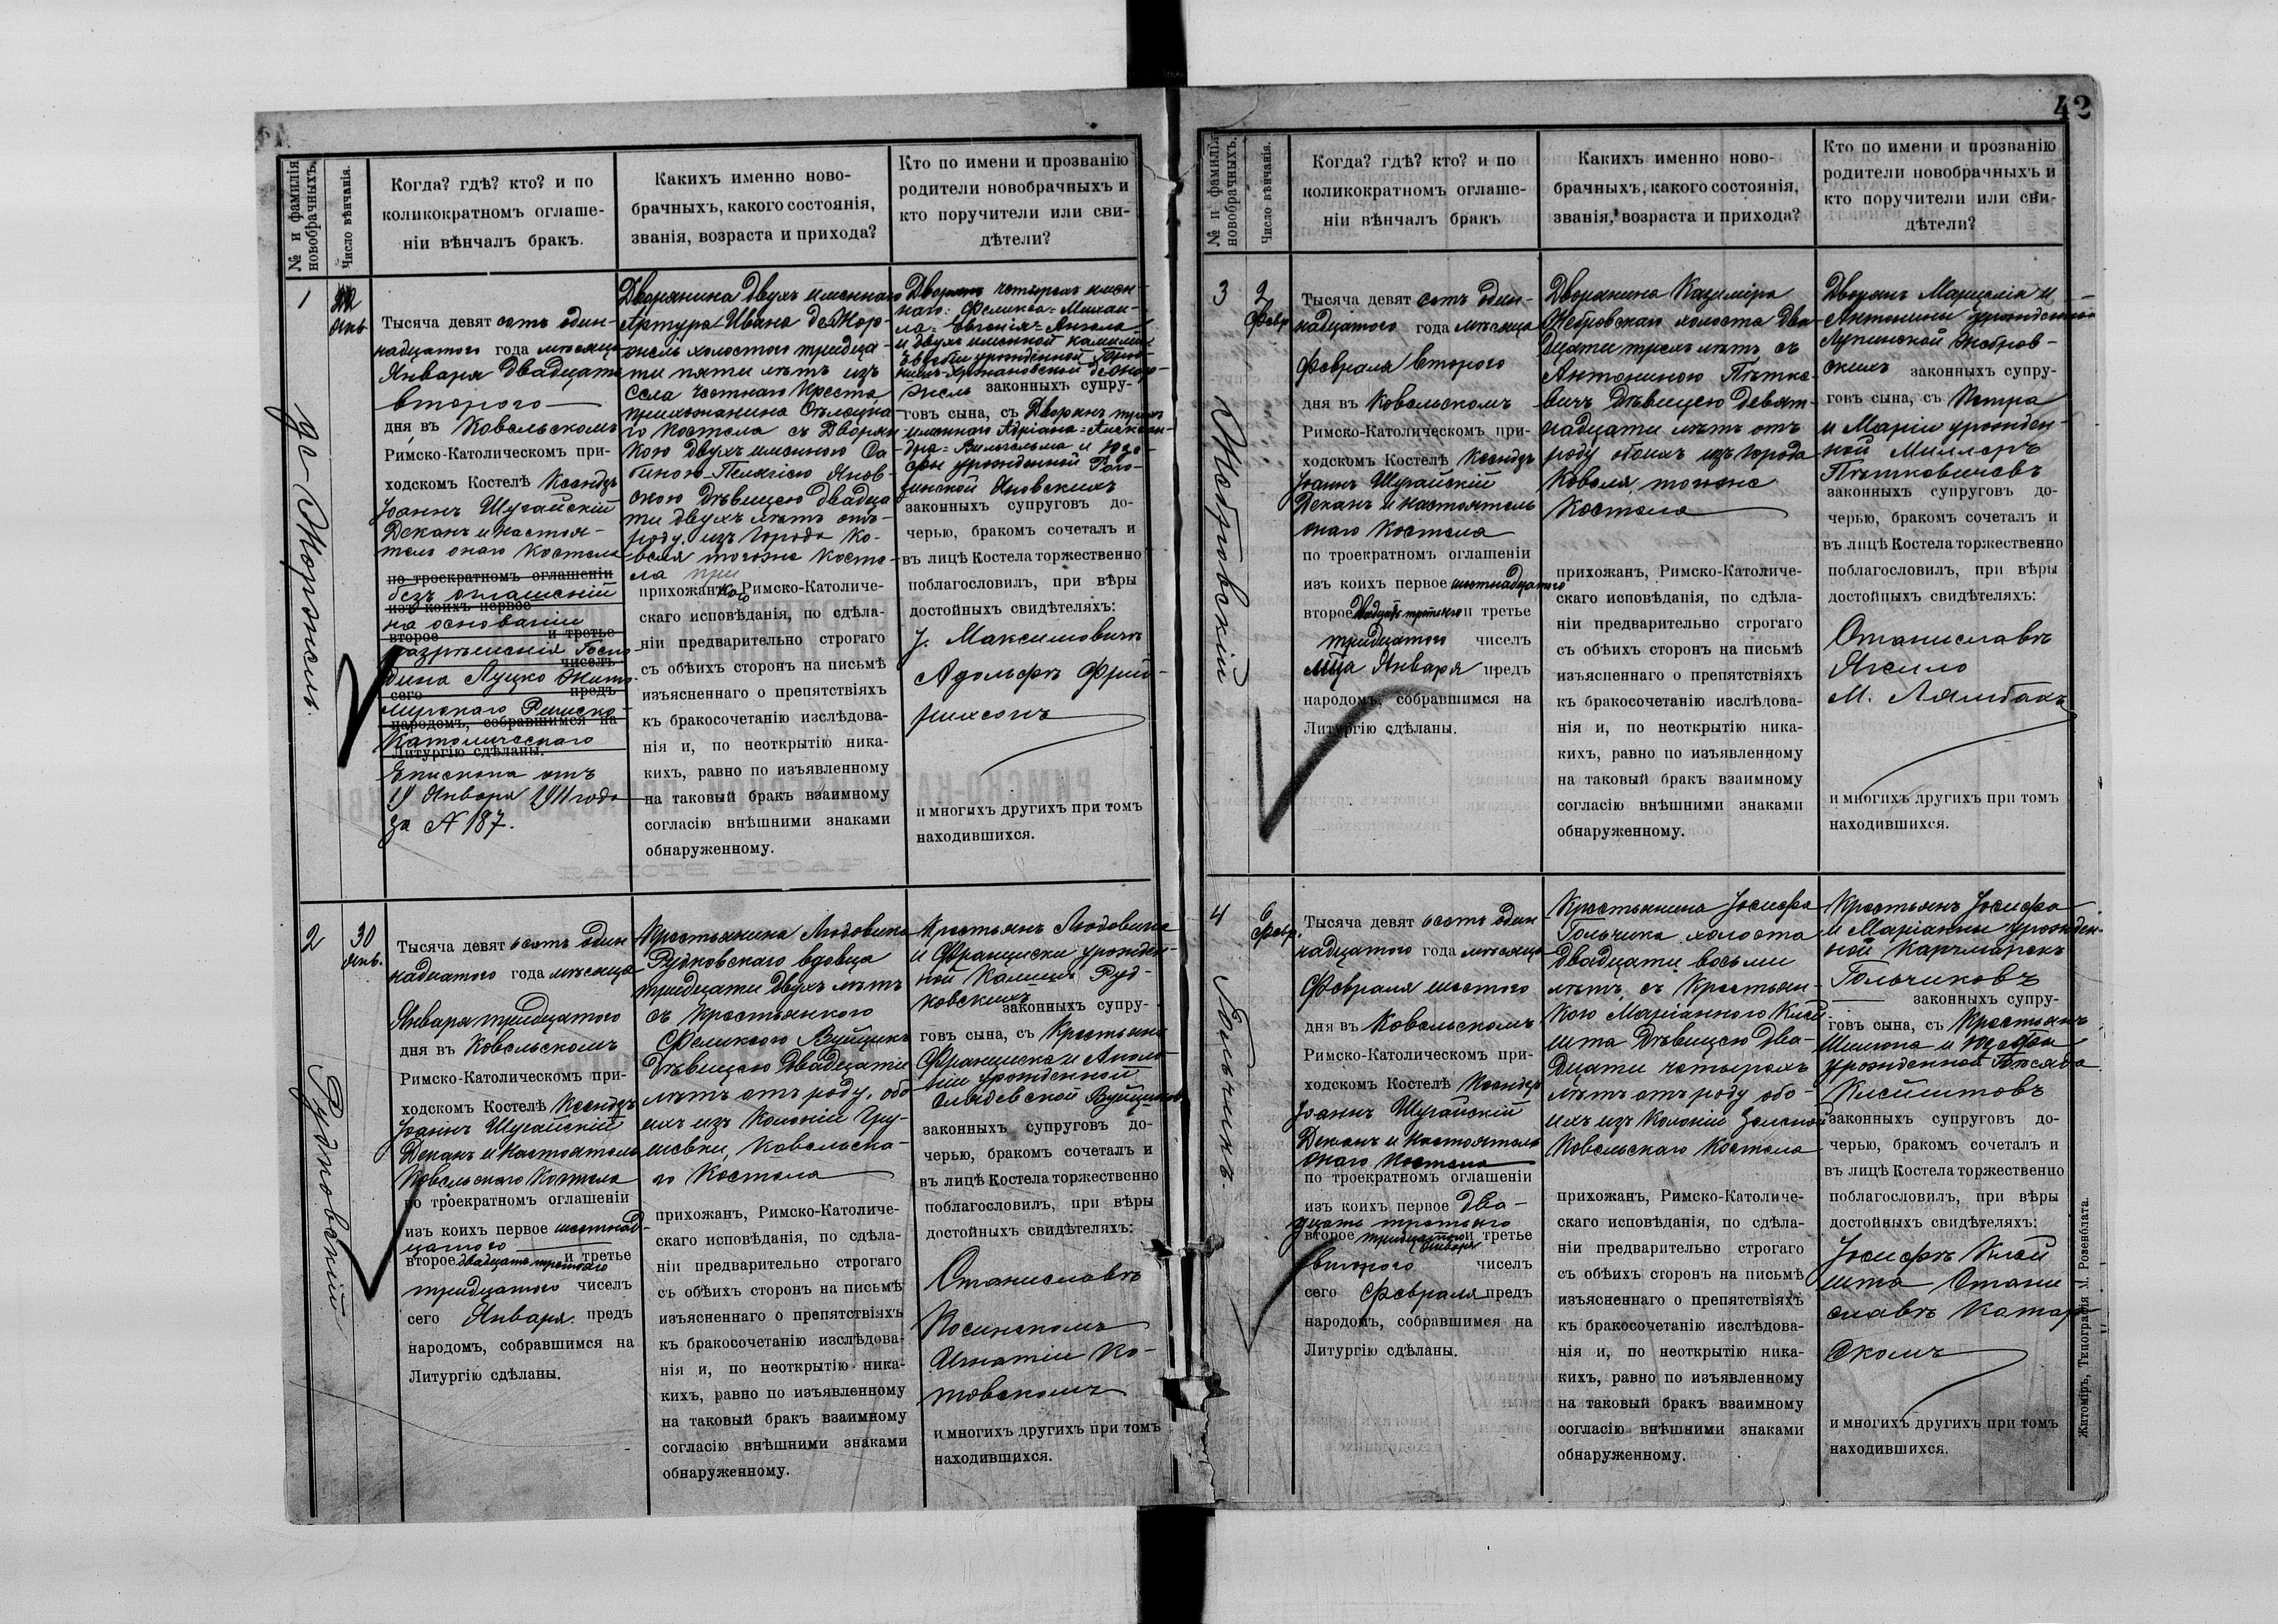 42
№ и фамилія новобрачныхъ.
Число вѣнчанія.
Когда? гдѣ? кто? и по
коликократномъ оглаше-
ніи вѣнчалъ бракъ.
Какихъ именно ново-
брачныхъ, какого состоянія,
званія, возраста и прихода?
Кто по имени и прозванію
родители новобрачныхъ и
кто поручители или сви-
дѣтели?
1
22
Янв.
Тысяча девят сотъ один-
надцатого года мѣсяца
Января двадцать
второго
дня въ Ковельскомъ
Римско-Католическомъ при-
ходскомъ Костелѣ Ксендзъ
Іоаннъ Шугайскій
Деканъ и Настоя-
тель онаго Костела
по троекратномъ оглашеніи
безъ оглашеній
изъ коихъ первое
на основаніи
второе и третье
разрѣшенія Госпо-
чиселъ
дина Луцко Жито-
сего предъ
мирскаго Римско-
народомъ, собравшимся на
Католическаго
Литургію сдѣланы.
Епископа отъ
19 Января 1911 года
за № 187.
Дворянина двухъ именнаго
Артура-Ивана
холостого тридца-
ти пяти лѣтъ изъ
Села Честнаго Креста
прихожанина
го Костела съ Дворян-
кою двухъ именною Са-
биною-Пелагіею Янов-
скою дѣвицею двадца-
ти двухъ лѣтъ отъ
роду, изъ города Ко-
веля тогоже Косте-
ла при
прихожан Римско-Католиче-
скаго исповѣданія, по сдѣла-
ніи предварительно строгаго
съ обѣихъ сторонъ на письмѣ
изъясненнаго о препятствіяхъ
къ бракосочетанію изслѣдова-
нія и, по неоткрытію ника-
кихъ, равно по изъявленному
на таковый бракъ взаимному
согласію внѣшними знаками
обнаруженному.
Дворянъ четырехъ имен-
наго: Феликса-Михаи-
ла-Евгенія-Ангела
и двухъ именной Камиллы
урожденной
законныхъ супру-
говъ сына, съ Дворянъ трехъ
именнаго Адріана-Алексан-
дра-Вильгельма и Юзе-
фы урожденной
Яновскихъ
законныхъ супруговъ до-
черью, бракомъ сочеталъ и
въ лицѣ Костела торжественно
поблагословилъ, при вѣры
достойныхъ свидѣтеляхъ:
І. Максимовичъ
Адольфъ Фрид-
рихсонъ
и многихъ другихъ при томъ
находившихся.
2
30
Янв.
Рудковскій
Тысяча девят сотъ один
надцатого года мѣсяца
Января тридцатого
дня въ Ковельскомъ
Римско-Католическомъ при-
ходскомъ Костелѣ Ксендзъ
Іоаннъ Шугайскій
Деканъ и Настоятель
Ковельскаго Костела
по троекратномъ оглашеніи
изъ коихъ первое шестнад-
цатого
второе двадцать третьяго и третье
тридцатого чиселъ
сего Января предъ
народомъ, собравшимся на
Литургію сдѣланы.
Крестьянина Людовика
Рудковскаго вдовца
тридцати двухъ лѣтъ
съ Крестьянкою
Феликсою Вуйцикъ
дѣвицею двадцати
лѣтъ отъ роду, обо
ихъ изъ Колоніи Гру-
шевки, Ковельска-
го Костела
прихожанъ, Римско-Католиче-
скаго исповѣданія, по сдѣла-
ніи предварительно строгаго
съ обѣихъ сторонъ на письмѣ
изъясненнаго о препятствіяхъ
къ бракосочетанію изслѣдова-
нія и, по неоткрытію ника-
кихъ, равно по изъявленному
на таковый бракъ взаимному
согласію внѣшними знаками
обнаруженному.
Крестьянъ Людовика
и Франциски урожден-
ной Калиш Руд-
ковскихъ
законныхъ супру-
говъ сына, съ Крестьянъ
Франциска и Аполо-
ніи урожденной
Вуйциковъ
законныхъ супруговъ до-
черью, бракомъ сочеталъ и
въ лицѣ Костела торжественно
поблагословилъ, при вѣры
достойныхъ свидѣтеляхъ:
Станиславѣ
Косинскомъ
Игнатіи Ко-
товскомъ
и многихъ другихъ при томъ
находившихся.
№ и фамилія новобрачныхъ.
Число вѣнчанія.
Когда? гдѣ? кто? и по
коликократномъ оглаше-
ніи вѣнчалъ бракъ
Какихъ именно ново-
брачныхъ, какого состоянія,
званія, возраста и прихода?
Кто по имени и прозванію
родители новобрачныхъ и
кто поручители или сви-
дѣтели?
3
2
Февр.
Жебровскій
Тысяча девят сотъ один-
надцатого года мѣсяца
Февраля второго
дня въ Ковельскомъ
Римско-Католическомъ при-
ходскомъ Костелѣ Ксендзъ
Іоаннъ Шугайскій
Деканъ и Настоятель
онаго Костела
по троекратномъ оглашеніи
изъ коихъ первое шестнадцатого
второе двадцать третьяго и третье
тридцатого чиселъ
мца Января предъ
народомъ, собравшимся на
Литургію сдѣланы.
Дворянина Казиміра
Жебровскаго холоста два
дцати трехъ лѣтъ съ
Антониною Пѣтке-
вичъ дѣвицею девят-
надцати лѣтъ отъ
роду обоихъ изъ города
Ковеля тогоже
Костела
прихожанъ, Римско-Католиче-
скаго исповѣданія, по сдѣла-
ніи предварительно строгаго
съ обѣихъ сторонъ на письмѣ
изъясненнаго о препятствіяхъ
къ бракосочетанію изслѣдова-
нія и, по неоткрытію ника-
кихъ, равно по изъявленному
на таковый бракъ взаимному
согласію внѣшними знаками
обнаруженному.
Дворянъ Марцелія и
Антонины урожденной
Лупинской Жебров-
скихъ законныхъ супру-
говъ сына, съ Петра
и Маріи урожден-
ной Миллеръ
Пѣткевичевъ
законныхъ супруговъ до-
черью, бракомъ сочеталъ и
въ лицѣ Костела торжественно
поблагословилъ, при вѣры
достойныхъ свидѣтеляхъ:
Станиславъ
М.
и многихъ другихъ при томъ
находившихся.
4
6
Февр.
Гольчикъ.
Тысяча девят сотъ один
надцатого года мѣсяца
Февраля шестого
дня въ Ковельскомъ
Римско-Католическомъ при-
ходскомъ Костелѣ Ксендзъ
Іоаннъ Шугайскій
Деканъ и Настоятель
онаго Костела
по троекратномъ оглашеніи
изъ коихъ первое два-
дцать третьяго
второе тридцатого и третье
Января
второго чиселъ
сего Февраля предъ
народомъ, собравшимся на
Литургію сдѣланы.
Крестьянина Іосифа
Гольчика холоста
двадцати восьми
лѣтъ съ Крестьян-
кою Маріанною Клей
шта дѣвицею два-
дцати четырехъ
лѣтъ отъ роду обо-
ихъ изъ Колоніи
Ковельскаго Костела
прихожанъ, Римско-Католиче-
скаго исповѣданія, по сдѣла-
ніи предварительно строгаго
съ обѣихъ сторонъ на письмѣ
изъясненнаго о препятствіяхъ
къ бракосочетанію изслѣдова-
нія и, по неоткрытію ника-
кихъ, равно по изъявленному
на таковый бракъ взаимному
согласію внѣшними знаками
обнаруженному.
Крестьянъ Іосифа
и Маріанны урожден-
ной Карчмарекъ
Гольчиковъ
законныхъ супру-
говъ сына, съ Крестьянъ
Шимона и Юзефы
урожденной
Клейштовъ
законныхъ супруговъ до-
черью, бракомъ сочеталъ и
въ лицѣ Костела торжественно
поблагословилъ, при вѣры
достойныхъ свидѣтеляхъ:
Іосифъ Клей
шта Стани
славъ
скомъ
и многихъ другихъ при томъ
находившихся.
Житоміръ, Типографія М. Розенблата.